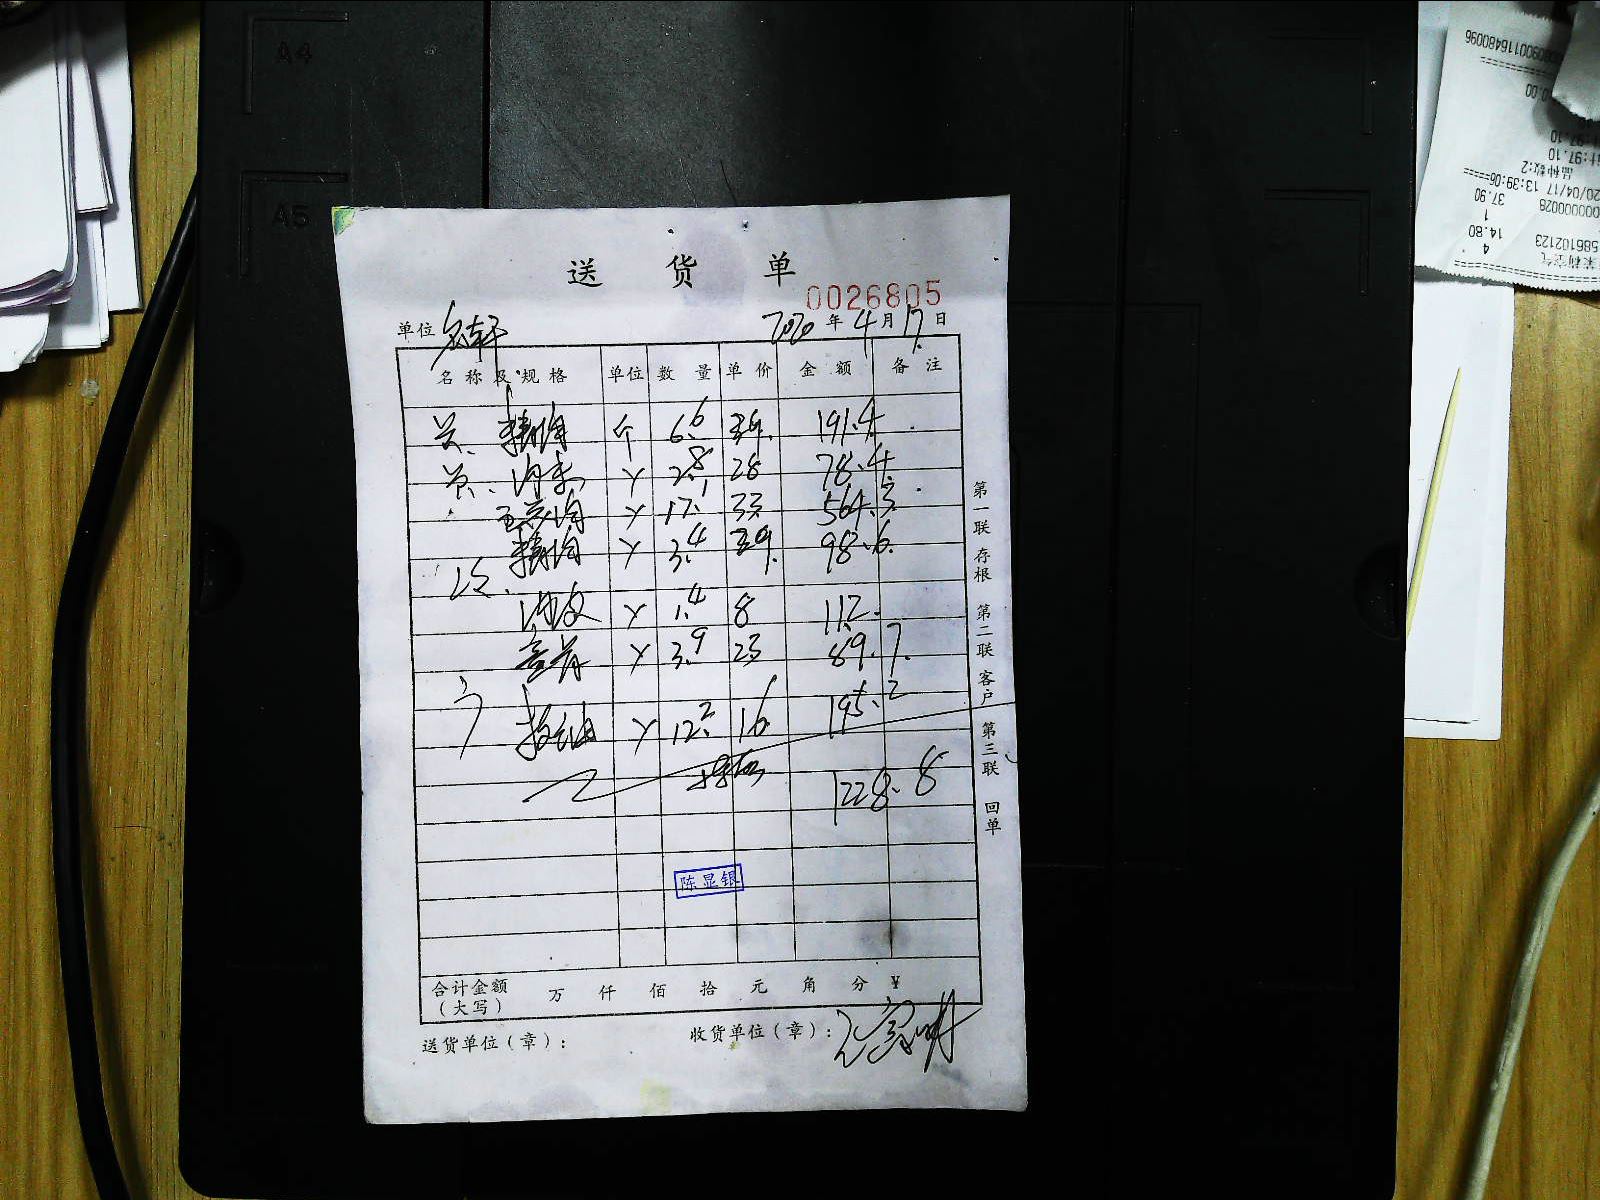 A4
A5
送 货 单
0026805
单位 名轩 2020 年 4 月 17 日
名称及规格 单位 数量 单价 金额 备注
精肉 斤 6.6 29. 191.4
2.8 28 78.4
五花肉 17.1 33 564.3
精肉 3.4 29. 98.6
1.4 8 11.2
3.9 23 89.7
12.2 16 195.2
1228.8
陈显银
合计金额
(大写) 万 仟 佰 拾 元 角 分 ¥
送货单位(章): 收货单位(章):
第一联 存根 第二联 客户 第三联 回单
000900116480096
0.00
97.10
计:97.10
品种数:2
20/04/17 13:39:06
37.90
000000028
1
14.80
586102123
4
茉莉空气